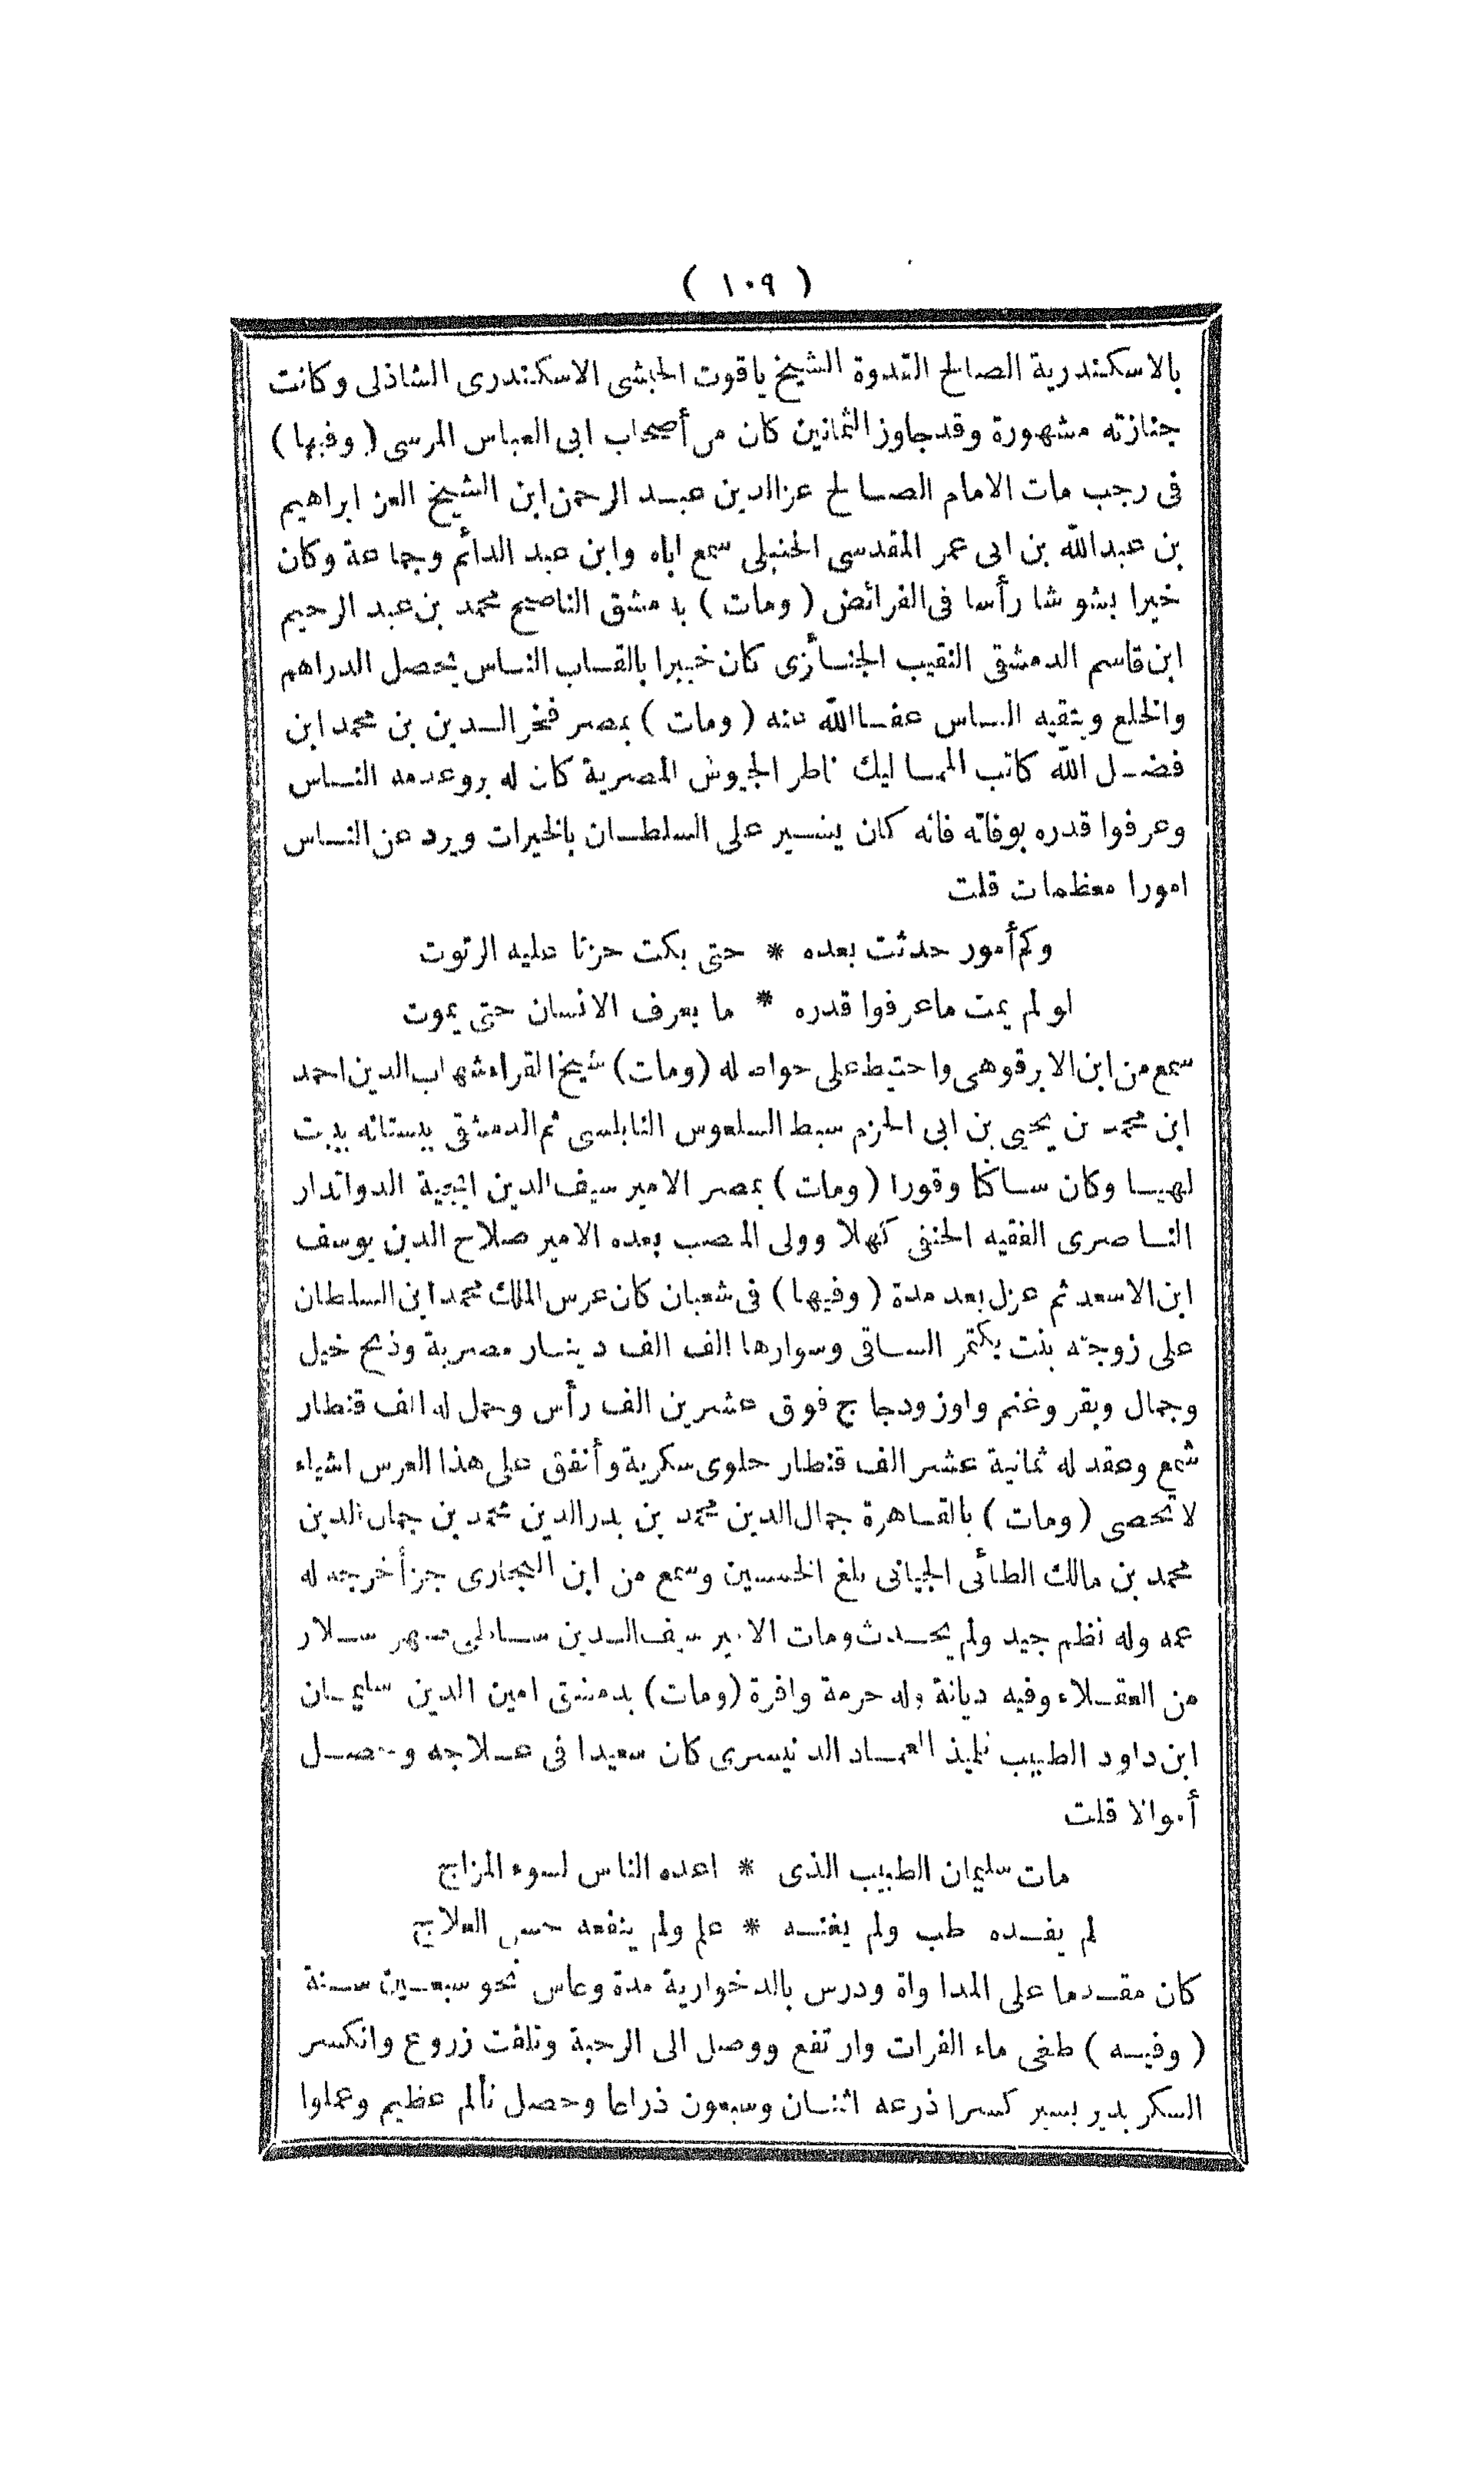 ( ١٠٩ )
بالاسكندرية الصالح القدوة الشيخ ياقوت الحبشى الاسكندرى الشاذلى وكانت
جنازته مشهورة وقد جاوز الثمانين كان من أصحاب ابى العباس المرسى ( وفيها )
فى رجب مات الامام الصالح عزالدين عبد الرحمن ابن الشيخ العز ابراهيم
بن عبدالله بن ابى عمر المقدسى الحنبلى سمع اباه وابن عبد الدائم وجماعة وكان
خيرا بشوشا رأسا فى الفرائض ( ومات ) بدمشق الناصح محمد بن عبد الرحيم
ابن قاسم الدمشقى النقيب الجنائزى كان خبيرا بالقاب الناس يحصل الدراهم
والخلع ويتقيه الناس عفا الله عنه ( ومات ) بمصر فخر الدين بن محمد ابن
فضل الله كاتب المماليك ناظر الجيوش المصرية كان له بر وعدمه الناس
وعرفوا قدره بوفاته فانه كان يشير على السلطان بالخيرات ويرد عن الناس
امورا معظمات قلت
وكم أمور حدثت بعده * حتى بكت حزنا عليه الرتوت
لو لم يمت ماعرفوا قدره * ما يعرف الانسان حتى يموت
سمع من ابن الابرقوهى واحتيط على حواصله ( ومات ) شيخ القراء شهاب الدين احمد
ابن محمد بن يحيى بن ابى الحزم سبط السلعوس النابلسى ثم الدمشقى ببستانه ببيت
لهيا وكان ساكنا وقورا ( ومات ) بمصر الامير سيف الدين الجيه الدواتدار
الناصرى الفقيه الحنفى كهلا وولى المنصب بعده الامير صلاح الدين يوسف
ابن الاسعد ثم عزل بعد مدة ( وفيها ) فى شعبان كان عرس الملك محمد ابن السلطان
على زوجته بنت بكتمر الساقى وسوارها الف الف دينار مصرية وذبح خيل
وجمال وبقر وغنم واوز ودجاج فوق عشرين الف رأس وحمل له الف قنطار
شمع وعقد له ثمانية عشر الف قنطار حلوى سكرية وأنفق على هذا العرس اشياء
لا تحصى ( ومات ) بالقاهرة جمال الدين محمد بن بدر الدين محمد بن جمال الدين
محمد بن مالك الطائى الجيانى بلغ الخمسين وسمع من ابن البخارى جزأ خرجه له
عمه وله نظم جيد ولم يحدث ومات الامير سيف الدين ساطى صهر سلار
من العقلاء وفيه ديانة وله حرمة وافرة ( ومات ) بدمشق امين الدين سليمان
ابن داود الطبيب تلميذ العماد الدنيسرى كان سعيدا فى علاجه وحصل
أموالا قلت
مات سليمان الطبيب الذى * اعده الناس لسوء المزاج
لم يفده طب ولم يغنه * علم ولم ينفعه حسن العلاج
كان مقدما على المداواة ودرس بالدخوارية مدة وعاش نحو سبعين سنة
( وفيه ) طغى ماء الفرات وارتفع ووصل الى الرحبة وتلفت زروع وانكسر
السكر بدير بسير كسرا ذرعه اثنان وسبعون ذراعا وحصل تألم عظيم وعملوا